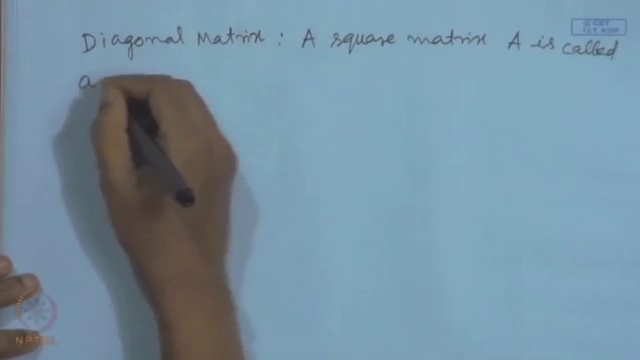 Diagonal Matrix : A square matrix A is called
a
© CET
I.I.T. KGP
NPTEL